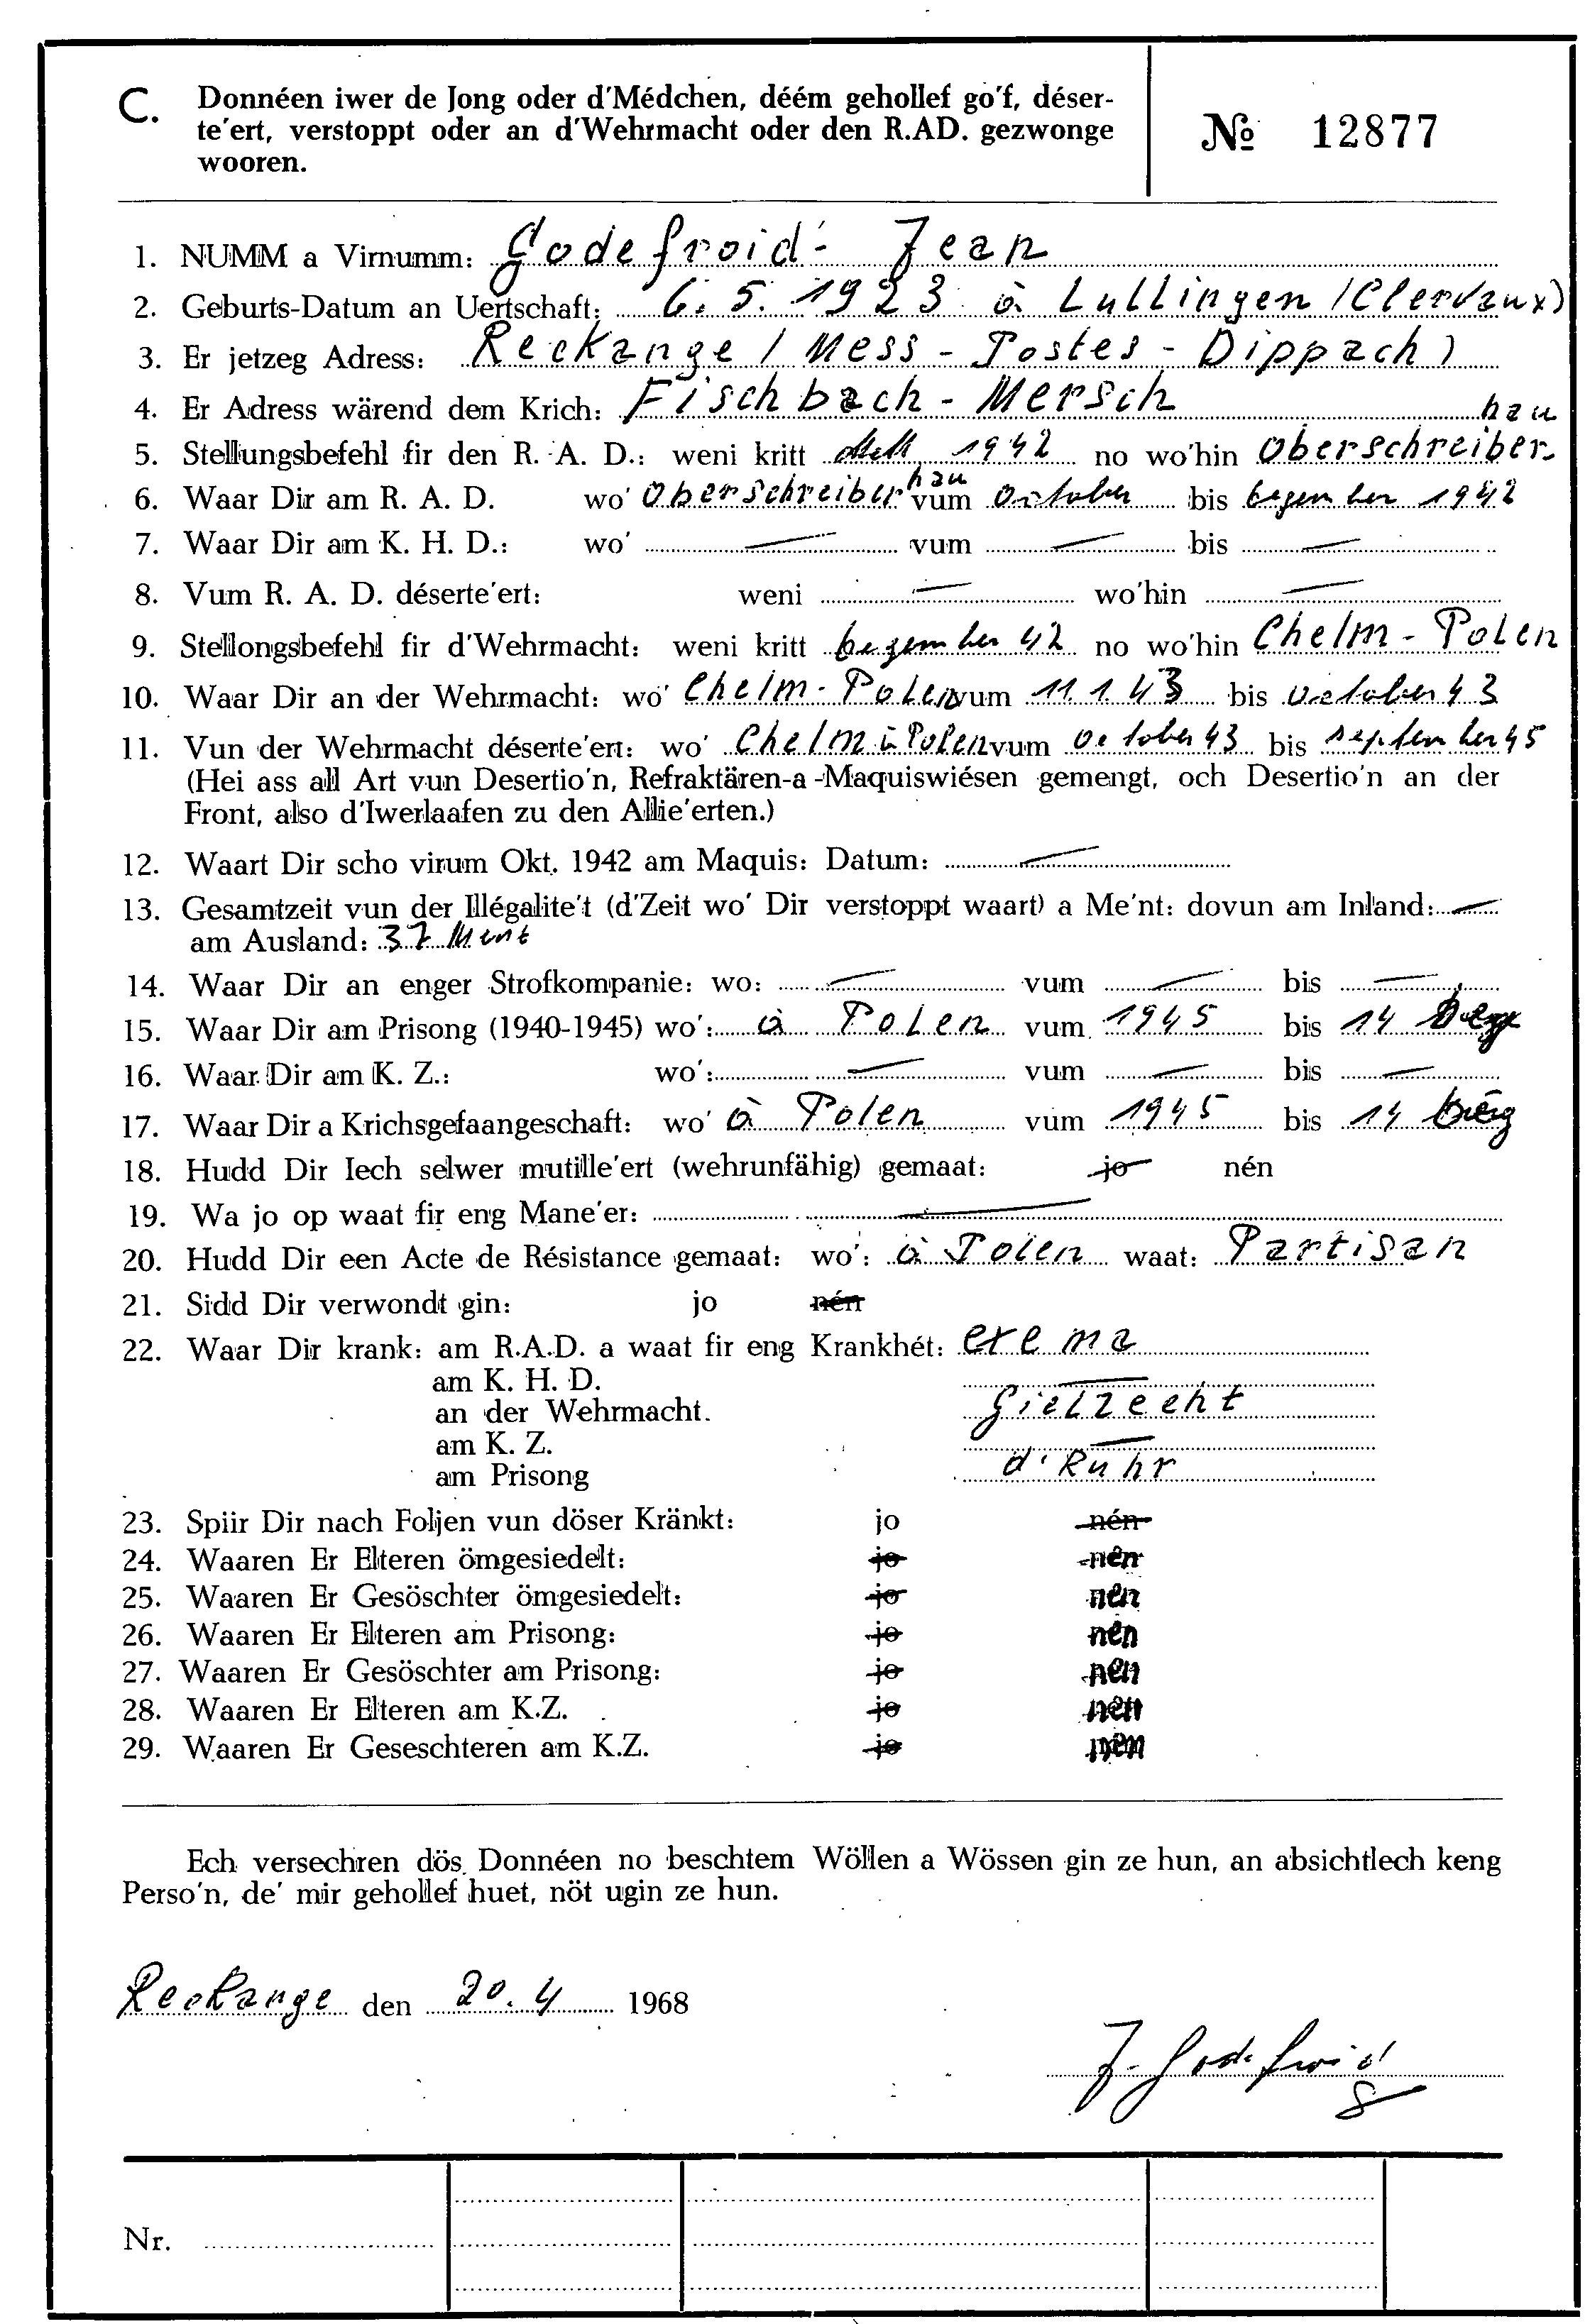 C. Donnéen iwer de Jong oder d'Médchen, déém gehollef go'f, déser-
te'ert, verstoppt oder an d'Wehrmacht oder den R.AD. gezwonge
wooren.
№ 12877
1. NUMM a Virnumm: Godefroid - Jean
2. Geburts-Datum an Uertschaft: 6. 5. 1923 à Lullingen (Clervaux)
3. Er jetzeg Adress: Reckange / Mess - Postes - Dippach)
4. Er Adress wärend dem Krich: Fischbach - Mersch
hau
5. Stellungsbefehl fir den R. A. D.: weni kritt 1942 no wo'hin Oberschreiber-
hau
6. Waar Dir am R. A. D. wo' Oberschreiber vum October bis bezember 1942
7. Waar Dir am K. H. D.: wo' — vum — bis —
8. Vum R. A. D. déserte'ert: weni — wo'hin —
9. Stellongsbefehl fir d'Wehrmacht: weni kritt bezember 42 no wo'hin Chelm - Polen
10. Waar Dir an der Wehrmacht: wo' Chelm - Polen vum 11.1.43 bis october 43
11. Vun der Wehrmacht déserte'ert: wo' Chelm à Polen vum october 43 bis september 45
(Hei ass all Art vun Desertio'n, Refraktären-a -Maquiswiésen gemengt, och Desertio'n an der
Front, also d'Iwerlaafen zu den Allie'erten.)
12. Waart Dir scho virum Okt. 1942 am Maquis: Datum: —
13. Gesamtzeit vun der Illégalite't (d'Zeit wo' Dir verstoppt waart) a Me'nt: dovun am Inland: —
am Ausland: 37 Ment
14. Waar Dir an enger Strofkompanie: wo: — vum — bis —
15. Waar Dir am Prisong (1940-1945) wo': à Polen vum 1945 bis 14
16. Waar Dir am K. Z.: wo': — vum — bis —
17. Waar Dir a Krichsgefaangeschaft: wo' à Polen vum 1945 bis 14
18. Hudd Dir Iech selwer mutille'ert (wehrunfähig) gemaat: jo nén
19. Wa jo op waat fir eng Mane'er: —
20. Hudd Dir een Acte de Résistance gemaat: wo': à Polen waat: Partisan
21. Sidd Dir verwondt gin: jo nén
22. Waar Dir krank: am R.A.D. a waat fir eng Krankhét: exema
am K. H. D. —
an der Wehrmacht. Gielzecht
am K. Z. —
am Prisong d'Ruhr
23. Spiir Dir nach Foljen vun döser Kränkt: jo nén
24. Waaren Er Elteren ömgesiedelt: jo nén
25. Waaren Er Gesöschter ömgesiedelt: jo nén
26. Waaren Er Elteren am Prisong: jo nén
27. Waaren Er Gesöschter am Prisong: jo nén
28. Waaren Er Elteren am K.Z. jo nén
29. Waaren Er Geseschteren am K.Z. jo nén
Ech versechren dös Donnéen no beschtem Wöllen a Wössen gin ze hun, an absichtlech keng
Perso'n, de' mir gehollef huet, nöt ugin ze hun.
Reckange den 20. 4 1968
J. Godefroid
Nr.